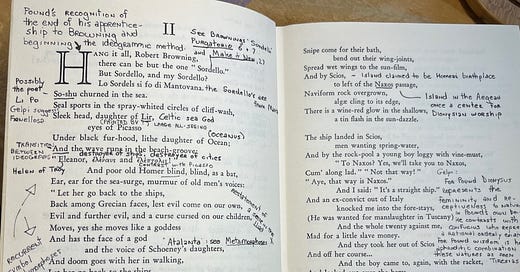 POUND'S RECOGNITION OF
THE END OF HIS APPRENTICE-
SHIP TO BROWNING AND
BEGINNING THE IDEOGRAMMIC METHOD.
II
SEE BROWNINGS' "Sordello"
PURGATORIO 6, 7
and Make it New, 2)
HANG it all, Robert Browning,
there can be but the one "Sordello."
But Sordello, and my Sordello?
Lo Sordels si fo di Mantovana.
So-shu churned in the sea.
Possibly
the poet
Li Po
Seal sports in the spray-whited circles of cliff-wash,
Sleek head, daughter of Lir,
Celtic sea God
eyes of Picasso
(OCEANUS)
Under black fur-hood, lithe daughter of Ocean;
And the wave runs in the beach-groove:
destroyer of ships, destroyer of cities
"Eleanor, ἑλέναυς and ἑλέπτολις!"
Helen of Troy
And poor old Homer blind, blind, as a bat,
Ear, ear for the sea-surge, murmur of old men's voices:
"Let her go back to the ships,
Back among Grecian faces, lest evil come on our own,
Evil and further evil, and a curse cursed on our children,
Moves, yes she moves like a goddess
And has the face of a god
and the voice of Schoeney's daughters,
Atalanta: see Metamorphoses X
And doom goes with her in walking,
Let her go back to the ships,
RECURRENT
Snipe come for their bath,
bend out their wing-joints,
Spread wet wings to the sun-film,
And by Scios,
- island claimed to be Homer's birthplace
to left of the Naxos passage,
Naviform rock overgrown,
algæ cling to its edge,
Island in the Aegean
once a center for
Dionysian worship
There is a wine-red glow in the shallows,
a tin flash in the sun-dazzle.
The ship landed in Scios,
men wanting spring-water,
And by the rock-pool a young boy loggy with vine-must,
"To Naxos? Yes, we'll take you to Naxos,
Cum' along lad." "Not that way!"
"Aye, that way is Naxos."
And I said: "It's a straight ship."
And an ex-convict out of Italy
knocked me into the fore-stays,
(He was wanted for manslaughter in Tuscany)
And the whole twenty against me,
Mad for a little slave money.
And they took her out of Scios
And off her course...
And the boy came to, again, with the racket,
Gelpi:
FOR POUND DIONYSUS
REPRESENTS THE
FEMININITY AND RE-